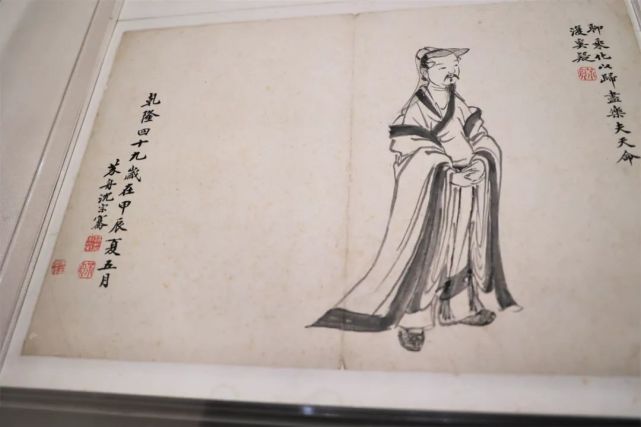 聊乘化以歸盡樂夫天命
復奚疑
乾隆四十九歲在甲辰夏五月
芥舟沈宗騫